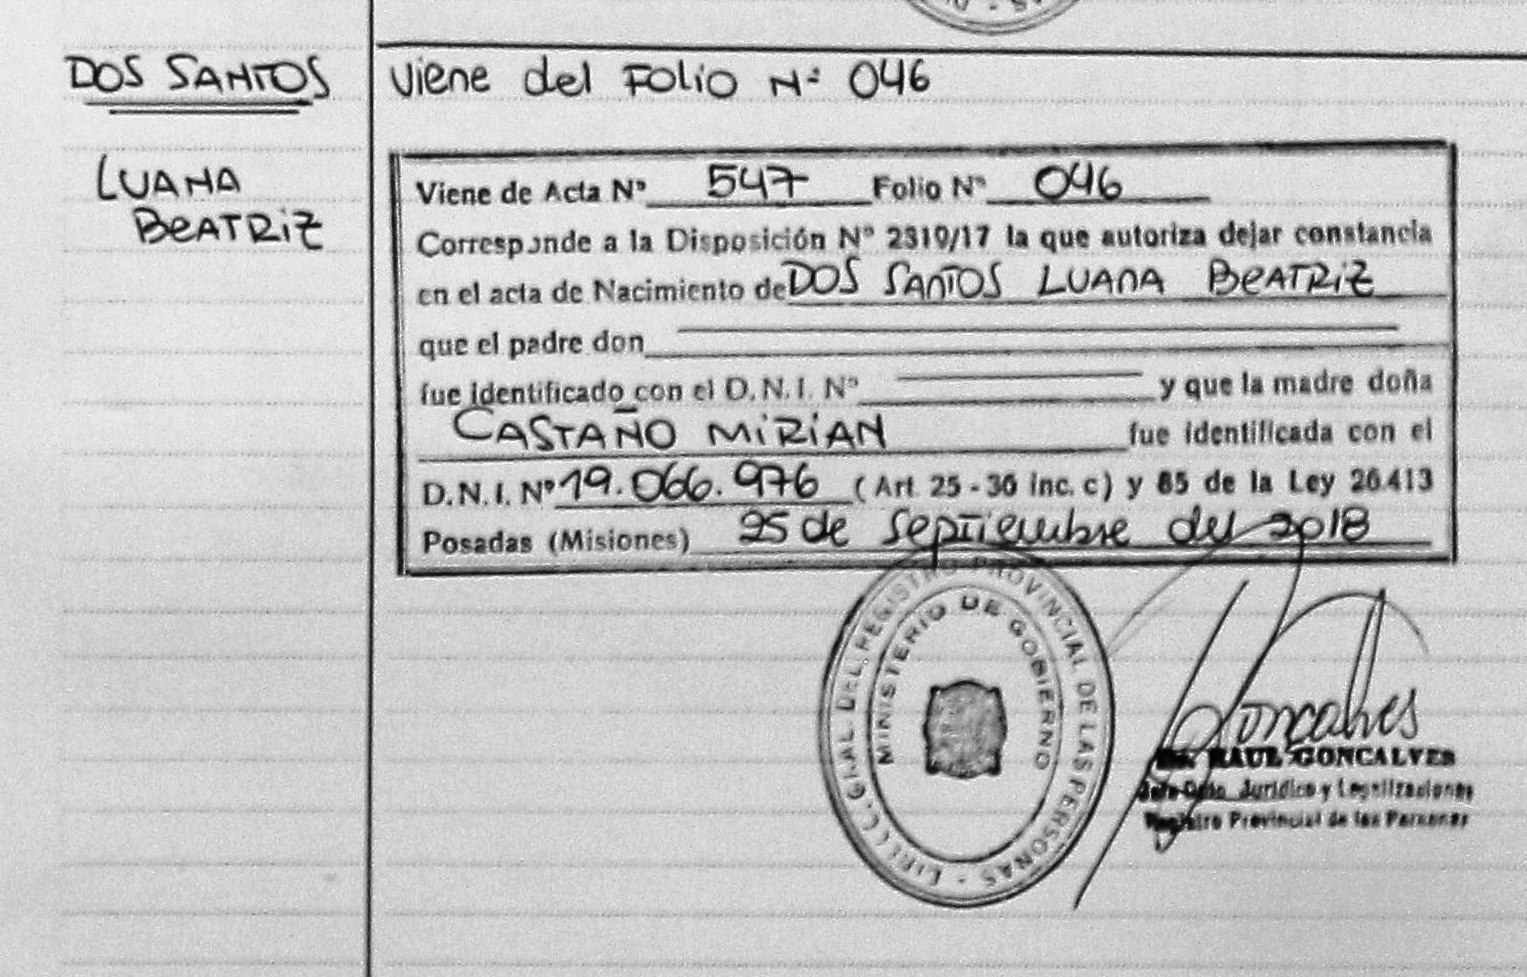 DOS SANTOS
LUANA
BEATRIZ
Viene del FOLIO Nº 046
Viene de Acta Nº 547 Folio Nº 046
Corresponde a la Disposición Nº 2319/17 la que autoriza dejar constancia
en el acta de Nacimiento de DOS SANTOS LUANA BEATRIZ
que el padre don
fue identificado con el D.N.I. Nº y que la madre doña
CASTAÑO MIRIAN fue identificada con el
D.N.I. Nº 19.066.976 (Art. 25 - 36 inc. c) y 85 de la Ley 26.413
Posadas (Misiones) 25 de Septiembre del 2018
GRAL. DEL REGISTRO PROVINCIAL DE LAS PERSONAS
MINISTERIO DE GOBIERNO
Goncalves
RAUL GONCALVES
Jefe Dpto. Jurídico y Legalizaciones
Registro Provincial de las Personas